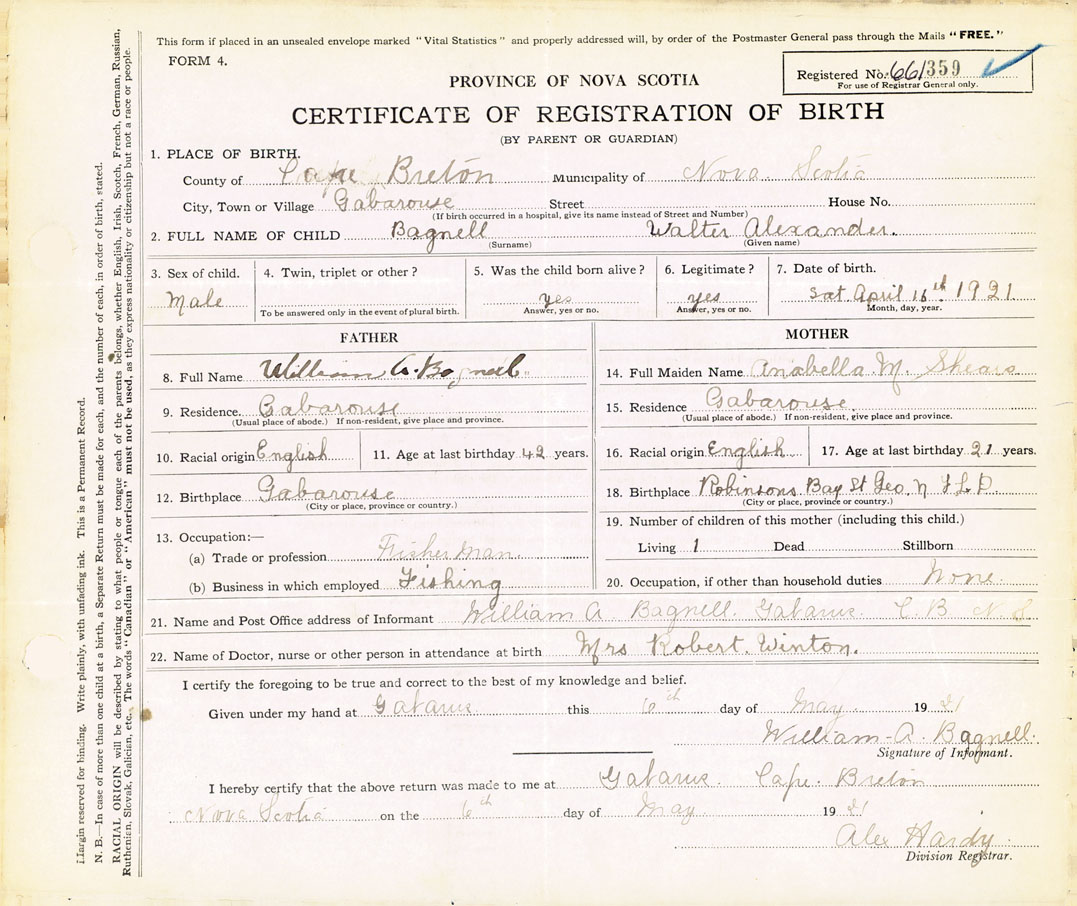 This form if placed in an unsealed envelope marked "Vital Statistics" and properly addressed will, by order of the Postmaster General pass through the Mails "FREE."
FORM 4.
Registered No. 661359
For use of Registrar General only.
PROVINCE OF NOVA SCOTIA
CERTIFICATE OF REGISTRATION OF BIRTH
(BY PARENT OR GUARDIAN)
1. PLACE OF BIRTH.
County of Cape Breton Municipality of Nova Scotia
City, Town or Village Gabarouse Street House No.
(If birth occurred in a hospital, give its name instead of Street and Number)
2. FULL NAME OF CHILD Bagnell Walter Alexander.
(Surname) (Given name)
3. Sex of child. 4. Twin, triplet or other? 5. Was the child born alive? 6. Legitimate? 7. Date of birth.
Male yes yes Sat. April 16th 1921
To be answered only in the event of plural birth. Answer, yes or no. Answer, yes or no. Month, day, year.
FATHER
8. Full Name William A. Bagnell
9. Residence. Gabarouse
(Usual place of abode.) If non-resident, give place and province.
10. Racial origin English 11. Age at last birthday 42 years.
12. Birthplace Gabarouse
(City or place, province or country.)
13. Occupation:—
(a) Trade or profession Fisherman.
(b) Business in which employed Fishing
MOTHER
14. Full Maiden Name Anabella M. Shears
15. Residence Gabarouse.
(Usual place of abode.) If non-resident, give place and province.
16. Racial origin English. 17. Age at last birthday 21 years.
18. Birthplace Robinsons Bay St Geo. N F L D.
(City or place, province or country.)
19. Number of children of this mother (including this child.)
Living 1 Dead Stillborn
20. Occupation, if other than household duties None.
21. Name and Post Office address of Informant William A Bagnell. Gabarus. C. B. N. S
22. Name of Doctor, nurse or other person in attendance at birth Mrs Robert. Winton.
I certify the foregoing to be true and correct to the best of my knowledge and belief.
Given under my hand at Gabarus this 6th day of May. 1921
William A. Bagnell.
Signature of Informant.
I hereby certify that the above return was made to me at Gabarus. Cape. Breton
Nova Scotia on the 6th day of May 1921
Alex Hardy.
Division Registrar.
Margin reserved for binding. Write plainly, with unfading ink. This is a Permanent Record.
N. B.—In case of more than one child at a birth, a Separate Return must be made for each, and the number of each, in order of birth, stated.
RACIAL ORIGIN will be described by stating to what people or tongue each of the parents belongs, whether English, Irish, Scotch, French, German, Russian,
Ruthenian, Slovak, Galician, etc. The words "Canadian" or "American" must not be used, as they express nationality or citizenship but not a race or people.